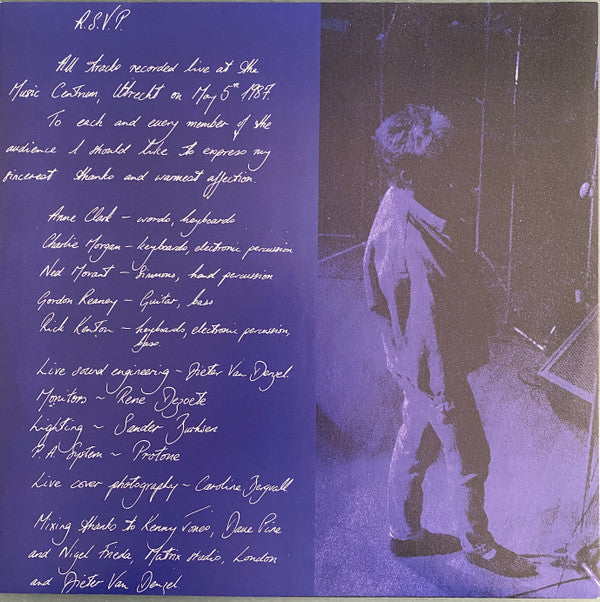 R.S.V.P.
All tracks recorded live at the
Music Centrum, Utrecht on May 5th 1987.
To each and every member of the
audience I should like to express my
sincerest thanks and warmest affection.
Anne Clark – words, keyboards
Charlie Morgan – keyboards, electronic percussion
Ned Morant – Simmons, hand percussion
Gordon Reaney – Guitar, bass
Rick Kenton – keyboards, electronic percussion,
bass.
Live sound engineering – Dieter Van Denzel.
Monitors – Rene Dezoete
Lighting – Sander
P.A. System – Protone
Live cover photography – Caroline Bergvall
Mixing thanks to Kenny Jones, Dave Pine
and Nigel Frieda, Matrix studio, London
and Dieter Van Denzel.